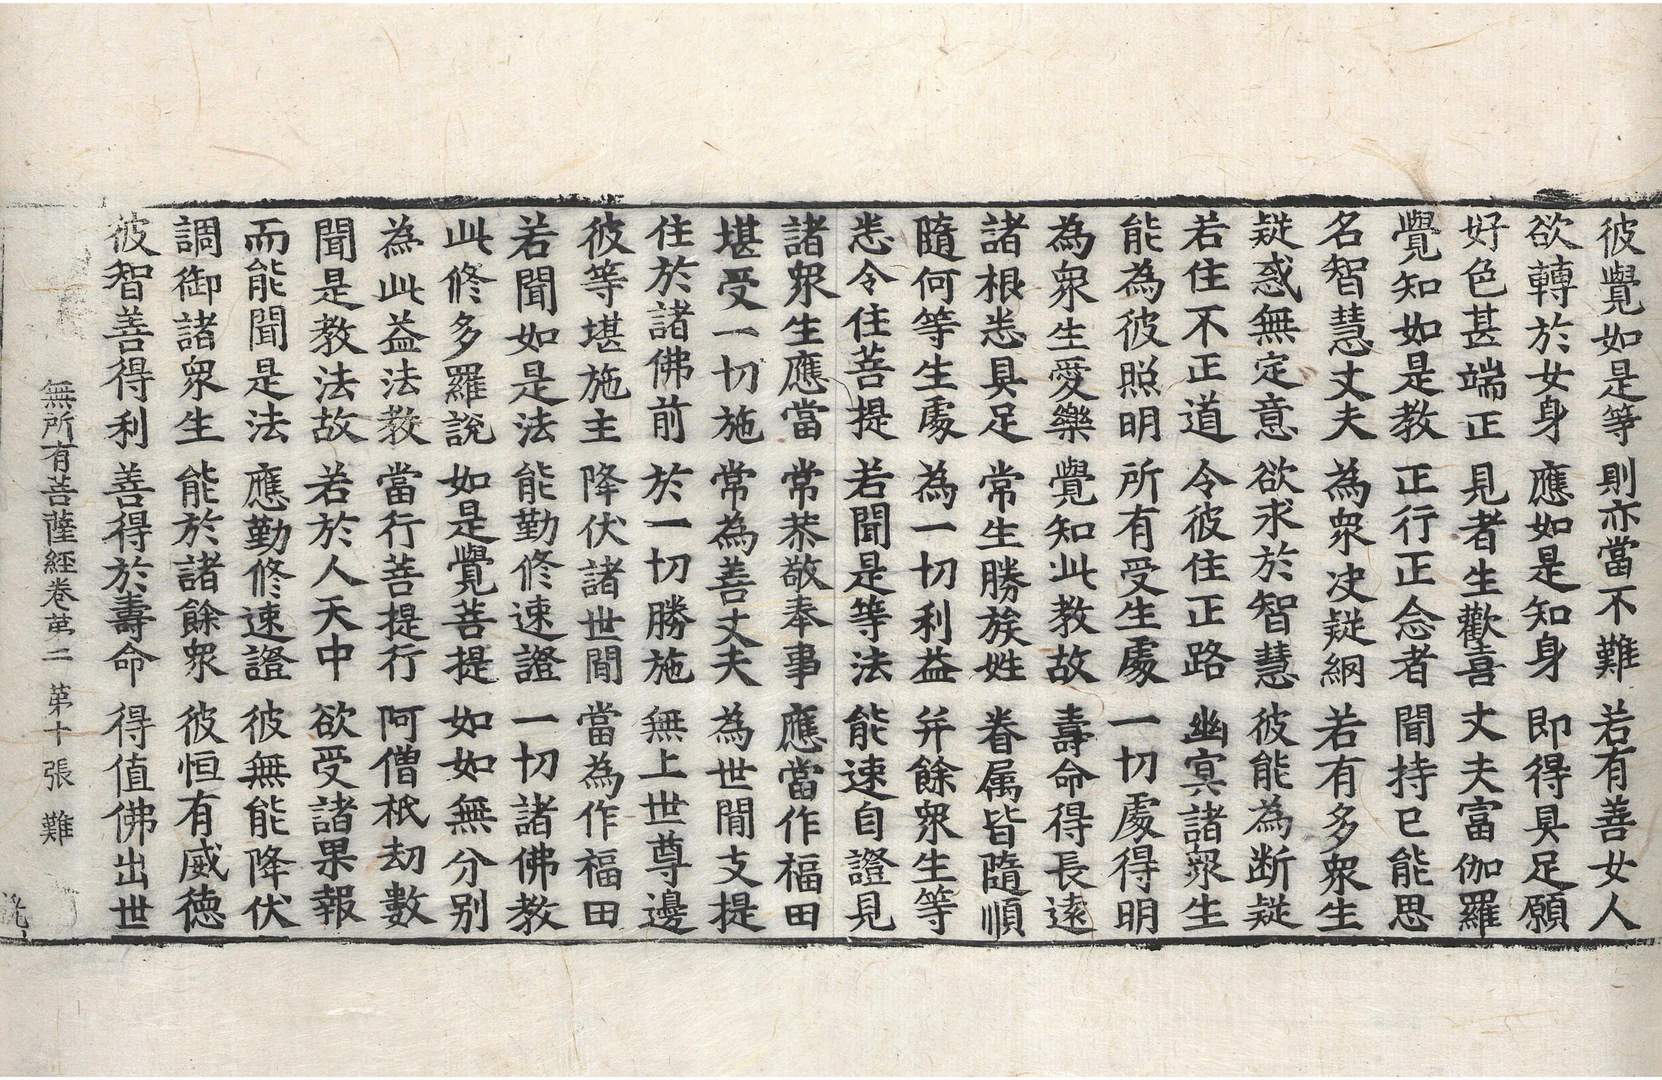 彼覺如是等　則亦當不難　若有善女人
欲轉於女身　應如是知身　即得具足願
好色甚端正　見者生歡喜　丈夫富伽羅
覺知如是教　正行正念者　聞持已能思
名智慧丈夫　為衆決疑網　若有多衆生
疑惑無定意　欲求於智慧　彼能為断疑
若住不正道　令彼住正路　幽㝠諸衆生
能為彼照明　所有受生處　一切處得明
為衆生愛樂　覺知此教故　壽命得長遠
諸根悉具足　常生勝族姓　眷属皆隨順
隨何等生處　為一切利益　并餘衆生等
悉令住菩提　若聞是等法　能速自證見
諸衆生應當　常恭敬奉事　應當作福田
堪受一切施　常為善丈夫　為世間支提
住於諸佛前　於一切勝施　無上世尊邊
彼等堪施主　降伏諸世間　當為作福田
若聞如是法　能勤修速證　一切諸佛教
此修多羅說　如是覺菩提　如如無分别
為此益法教　當行菩提行　阿僧祇劫數
聞是教法故　若於人天中　欲受諸果報
而能聞是法　應勤修速證　彼無能降伏
調御諸衆生　能於諸餘衆　彼恒有威德
彼智善得利　善得於壽命　得值佛出世
無所有菩薩經卷第二　第十張　難